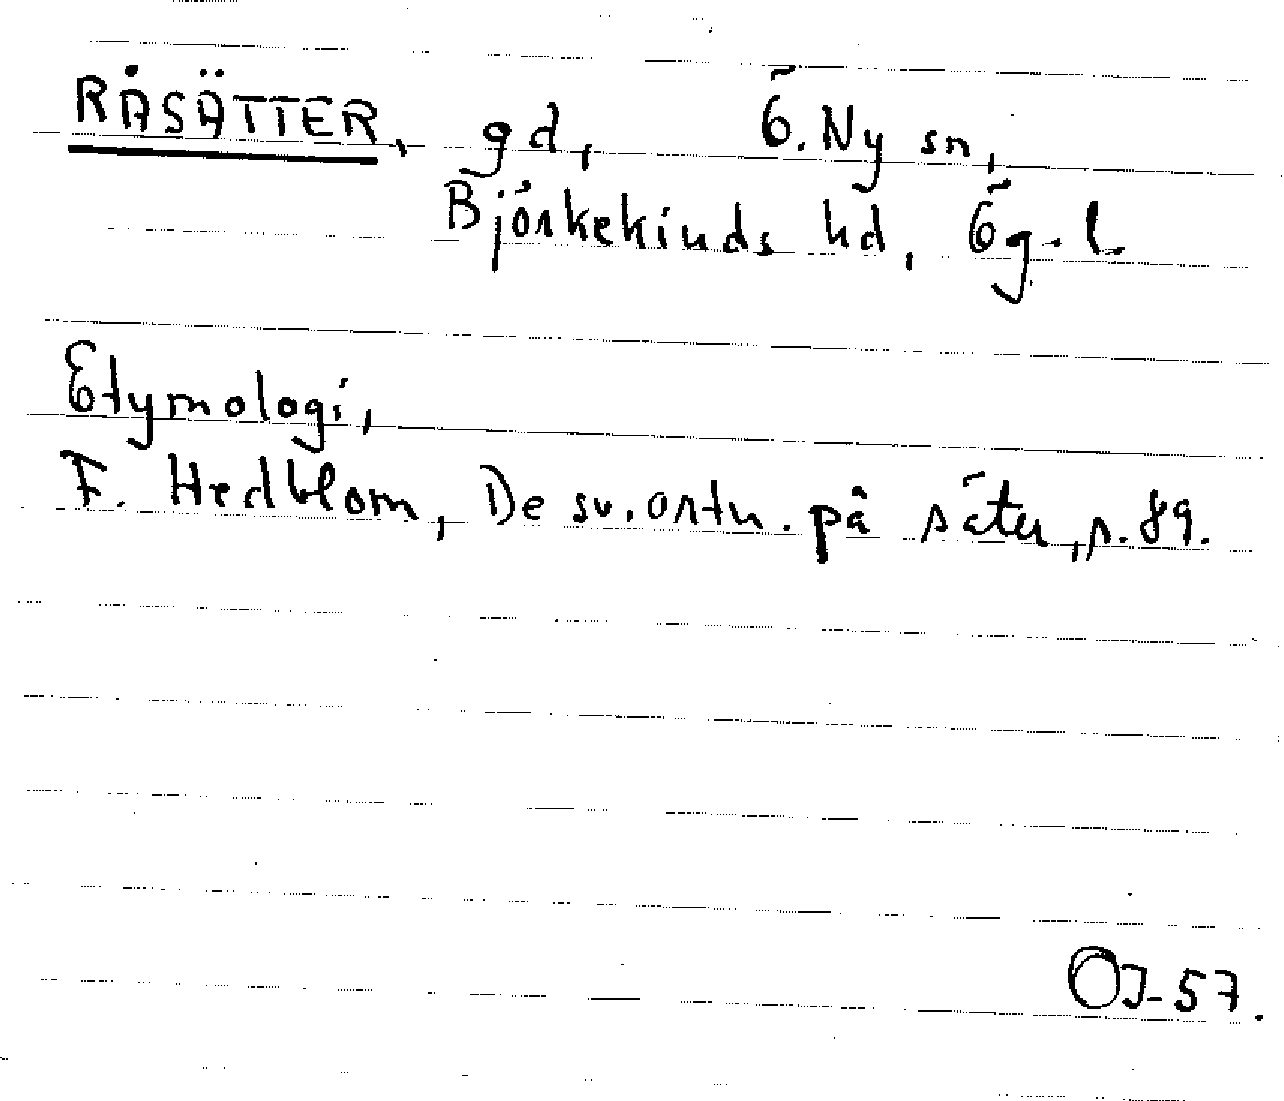 RÅSÄTTER, gd, Ö. Ny sn,
Björkekinds hd, Ög. l
Etymologi,
F. Hedblom, De sv. ortn. på säter, s. 89.
OJ-57.